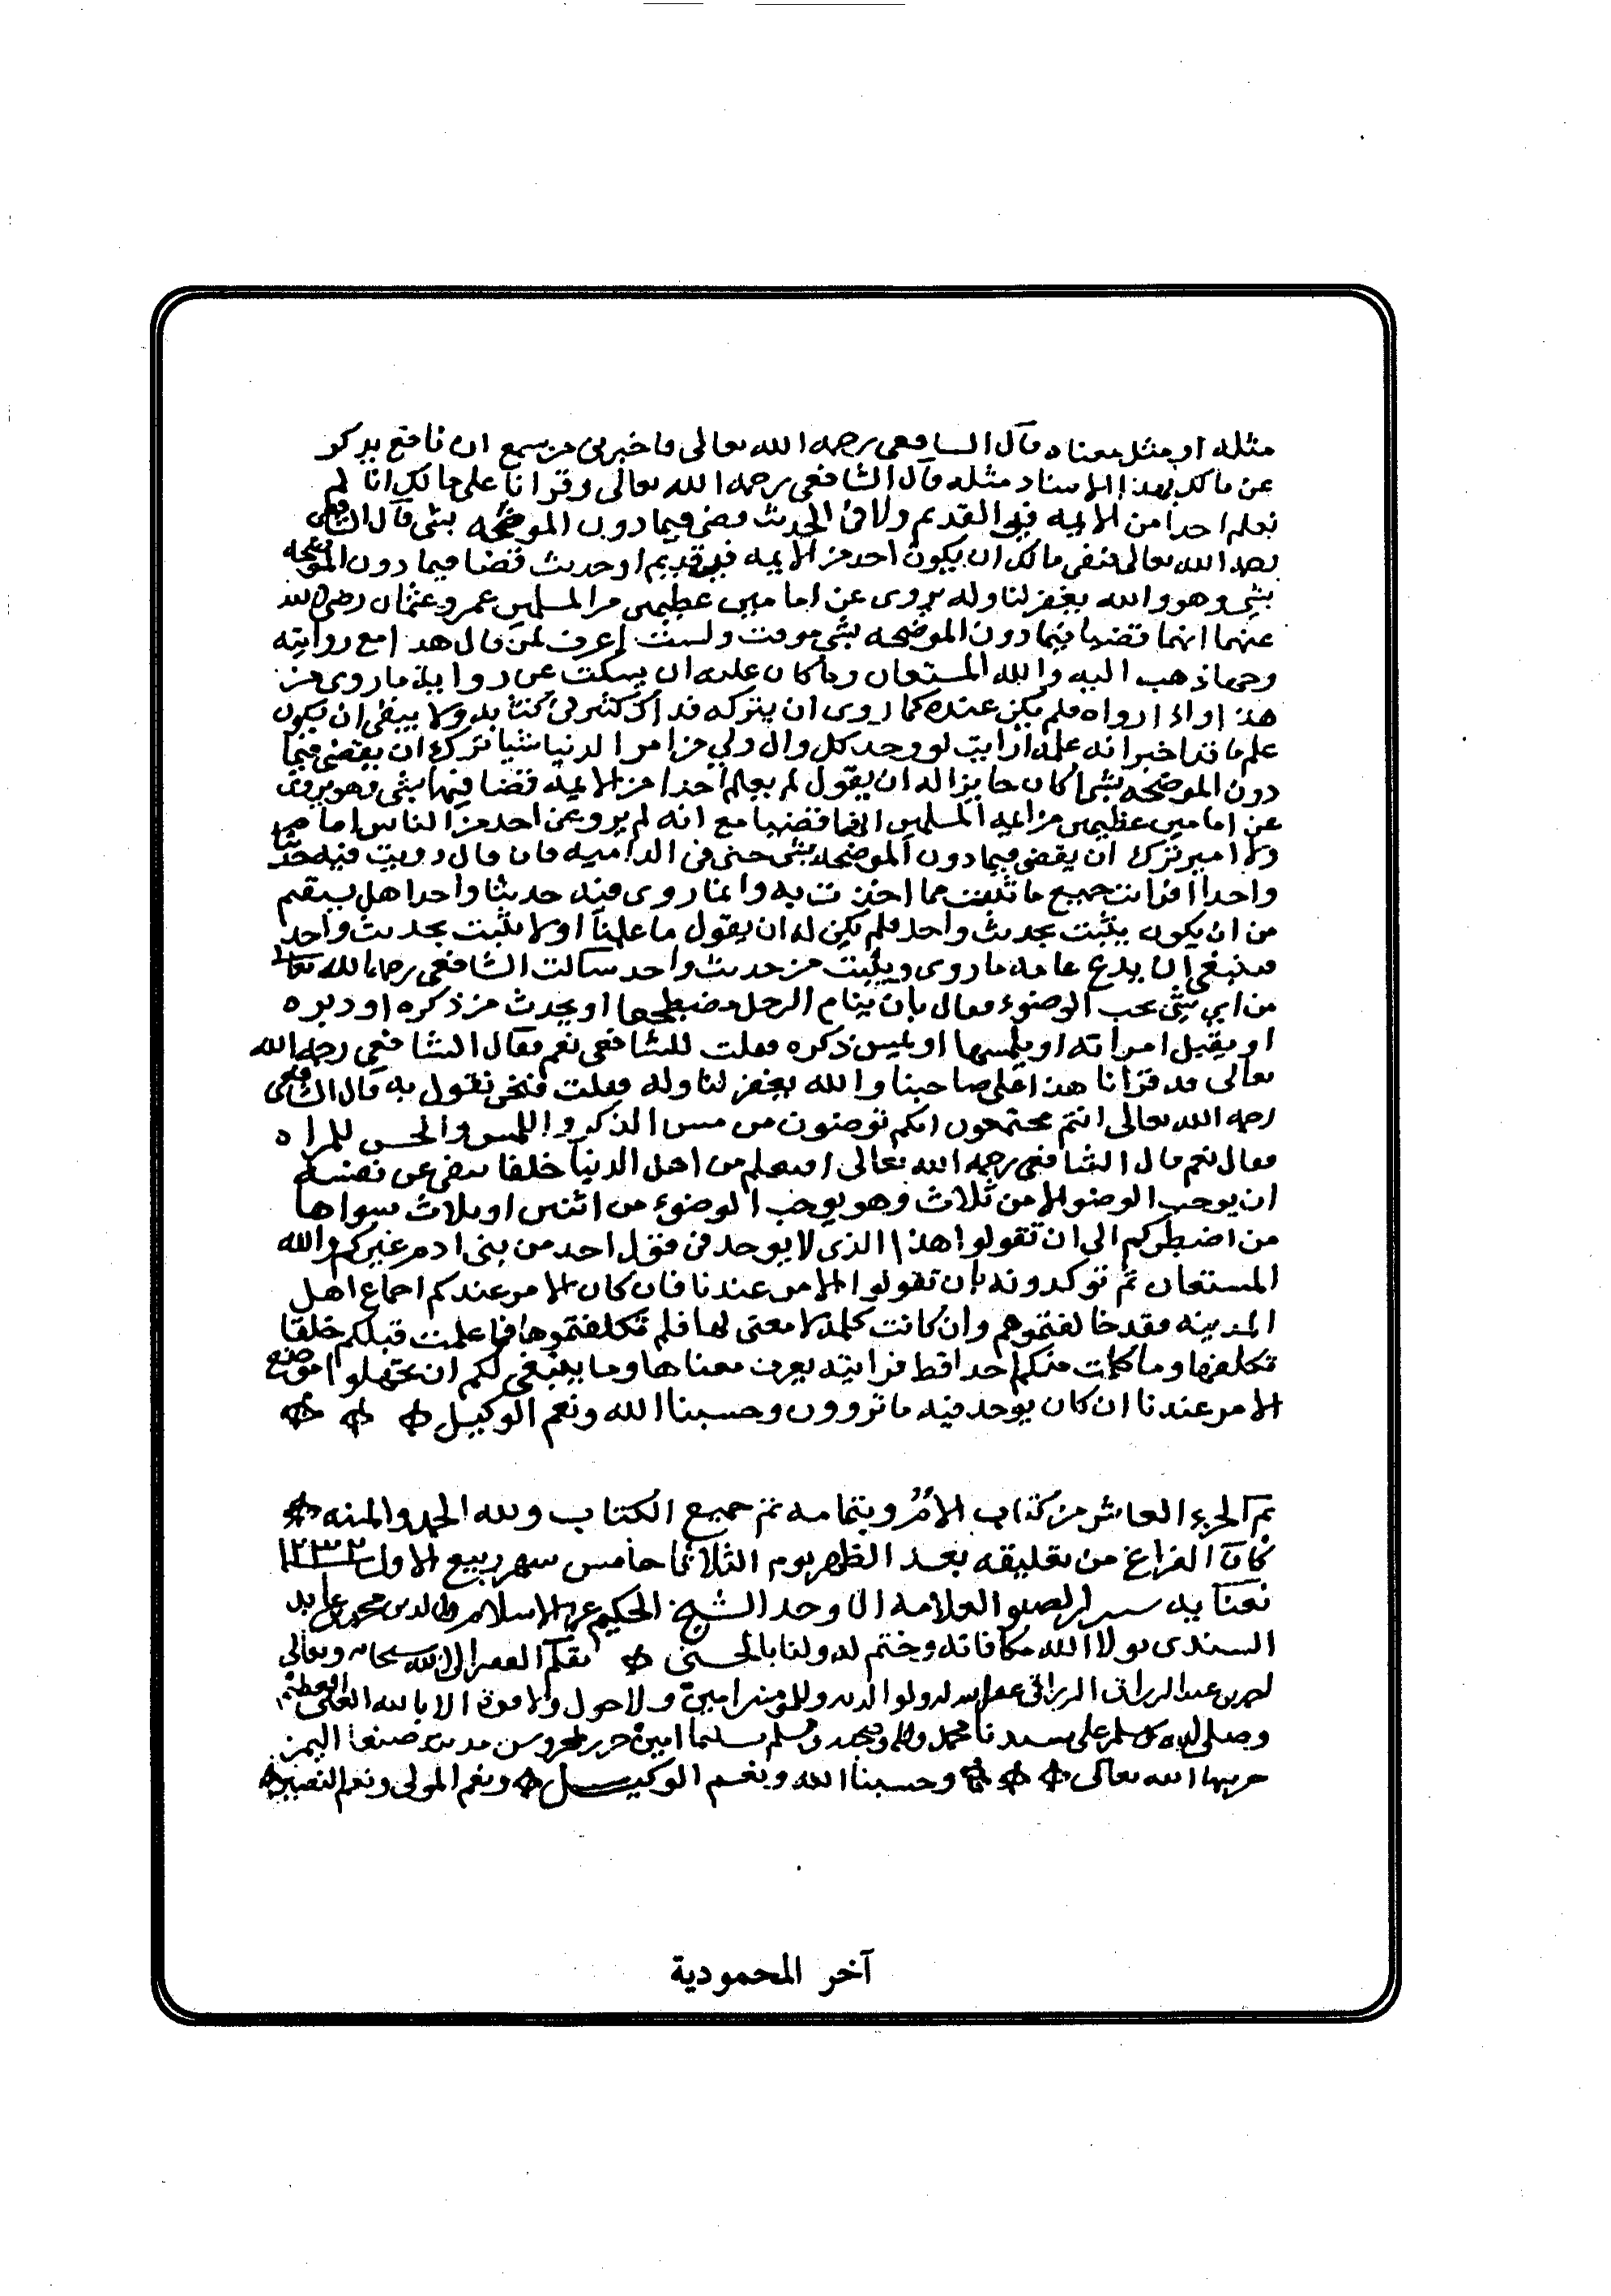 مثله او مثل معناه قال الشافعي رحمه الله تعالى واخبرني من سمع ابن نافع يذكر
عن مالك بهذا الاسناد مثله قال الشافعي رحمه الله تعالى وقرانا على مالك انا لم
نعلم احدا من الايمه في القديم ولا في الحديث قضى فيما دون الموضحه بشي قال الشافعي
رحمه الله تعالى فنفى مالك ان يكون احد من الايمه في قديم او حديث قضا فيما دون الموضحه
بشي وهو والله يغفر لنا وله يروى عن امامين عظيمين من المسلمين عمر وعثمان رضي الله
عنهما انهما قضيا فيما دون الموضحه بشي موقت ولست اعرف لمن قال هذا مع روايته
وجها ذهب اليه والله المستعان وما كان عليه ان يسكت عن رواية ما روى من
هذا او اذا رواه فلم يكن عنده كما روى ان يتركه فذاك كثير في كتابه ولا ينبغي ان يكون
علم ما قد اخبر انه علمه ارايت لو وجد كل وال ولي من امر الدنيا شيا ترك ان يقضي فيما
دون الموضحه بشي اكان جايزا له ان يقول لم يعلم احدا من الايمه قضا فيها بشي وهو يروى
عن امامين عظيمين من ايمه المسلمين انهما قضيا مع انه لم يرو عن احد من الناس امام
ولا امير ترك ان يقضي فيما دون الموضحه بشي حتى في الداميه فان قال رويت فيه حديثا
واحدا افرايت جميع ما ثبت مما اخذت به وانما روى فيه حديثا واحدا هل يستقيم
من ان يكون يثبت بحديث واحد فلم يكن له ان يقول ما علمنا او لا يثبت بحديث واحد
فينبغي ان يدع عامه ما روى ويثبت من حديث واحد سالت الشافعي رحمه الله تعالى
من اي شي يجب الوضوء فقال بان ينام الرجل مضطجعا او يحدث من ذكره او دبره
او يقبل امراته او يلمسها او يمس ذكره فقلت للشافعي نعم فقال الشافعي رحمه الله
تعالى قد قرانا هذا على صاحبنا والله يغفر لنا وله فقلت فنحن نقول به قال الشافعي
رحمه الله تعالى انتم مجتمعون انكم توضئون من مس الذكر واللمس والجس للمراه
فقال نعم قال الشافعي رحمه الله تعالى افتعلم من اهل الدنيا خلقا ينفي عن نفسه
ان يوجب الوضو الا من ثلاث وهو يوجب الوضوء من اثنين او ثلاث سواها
من اضطركم الى ان تقولوا هذا الذي لا يوجد في قول احد من بني ادم غيركم والله
المستعان ثم توكدونه بان تقولوا الامر عندنا فان كان الامر عندكم اجماع اهل
المدينه فقد خالفتموهم وان كانت كلمة لا معنى لها فلم تكلفتموها فما علمت قبلكم خلقا
تكلفها وما كلمت منكم احدا قط فرايته يعرف معناها وما ينبغي لكم ان تجهلوا موضع
الامر عندنا ان كان يوجد فيه ما تروون وحسبنا الله ونعم الوكيل
تم الجزء العاشر من كتاب الام وبتمامه تم جميع الكتاب ولله الحمد والمنه
كان الفراغ من تعليقه بعد الظهر يوم الثلاثا خامس شهر ربيع الاول ١٢٣٢
بعناية العلامه الاوحد الشيخ الحكيم عز الاسلام والدين محمد عابد
السندي تولا الله مكافاته وختم له ولنا بالحسنى بقلم الفقير الى الله سبحانه وتعالى
عبد الرزاق غفر الله له ولوالديه وللمؤمنين امين ولا حول ولا قوة الا بالله العلي العظيم
وصلى الله وسلم على سيدنا محمد واله وصحبه وسلم تسليما امين حرر بمحروس مدينة صنعا اليمن
حرسها الله تعالى وحسبنا الله ونعم الوكيل ونعم المولى ونعم النصير
آخر المحمودية